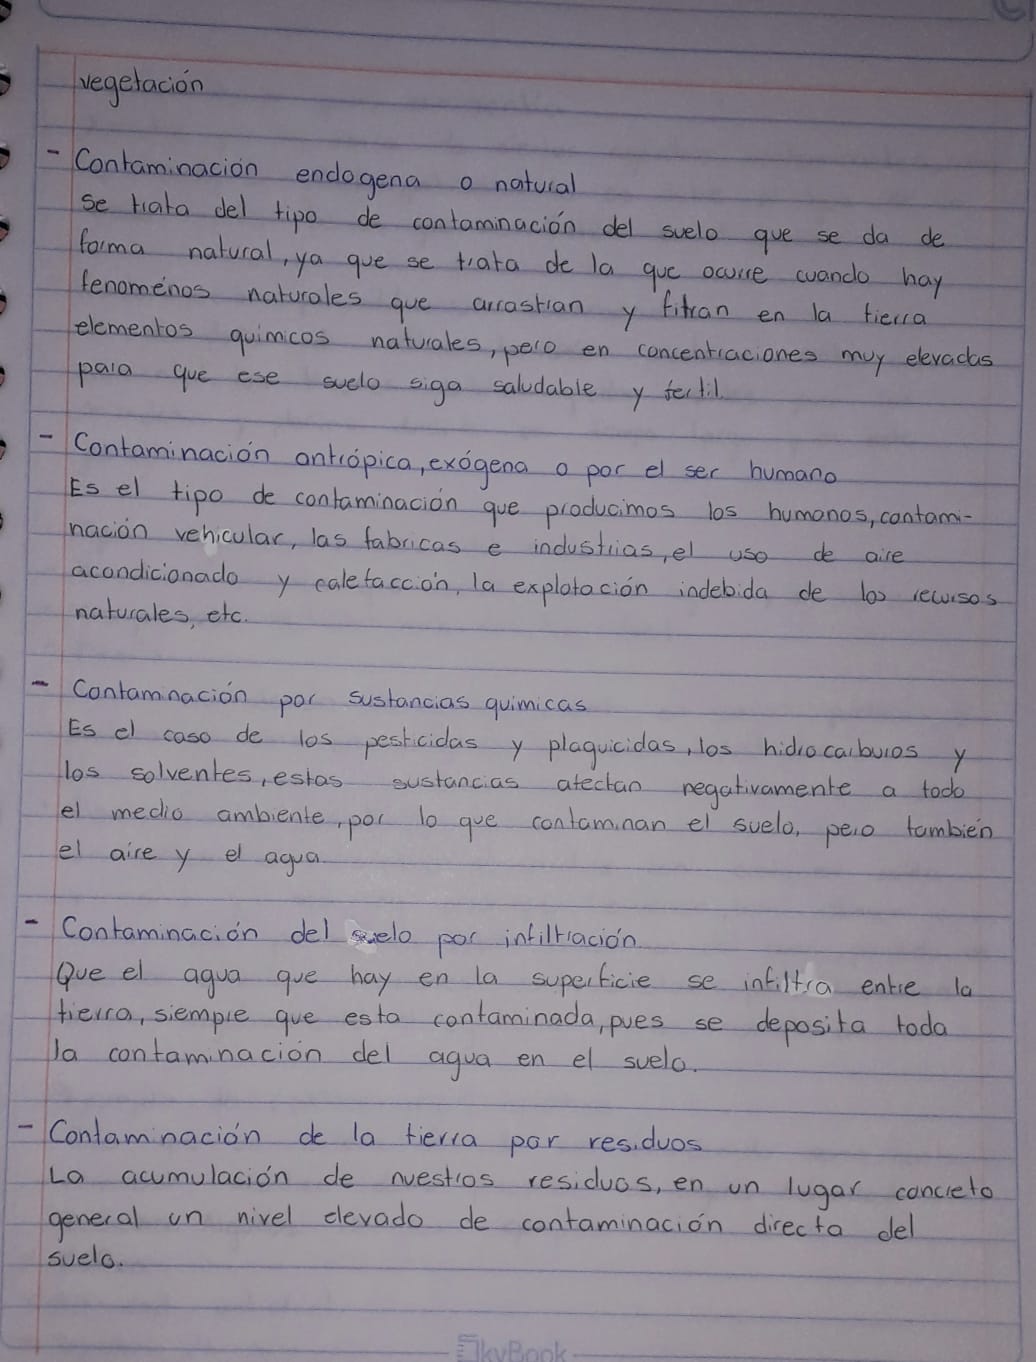 vegetación
- Contaminación endogena o natural
se trata del tipo de contaminación del suelo que se da de
forma natural, ya que se trata de la que ocurre cuando hay
fenoménos naturales que arrastran y fitran en la tierra
elementos quimicos naturales, pero en concentraciones muy elevadas
para que ese suelo siga saludable y fertil.
- Contaminación antrópica, exógena o por el ser humano
Es el tipo de contaminación que producimos los humanos, contami-
nación vehicular, las fabricas e industrias, el uso de aire
acondicionado y calefacción, la explotación indebida de los recursos
naturales, etc.
- Contaminación por sustancias quimicas
Es el caso de los pesticidas y plaguicidas, los hidrocarburos y
los solventes, estas sustancias afectan negativamente a todo
el medio ambiente, por lo que contaminan el suelo, pero también
el aire y el agua.
- Contaminación del suelo por infiltración
Que el agua que hay en la superficie se infiltra entre la
tierra, siempre que esta contaminada, pues se deposita toda
la contaminación del agua en el suelo.
- Contaminación de la tierra por residuos
La acumulación de nuestros residuos, en un lugar concreto
general un nivel elevado de contaminación directa del
suelo.
SkyBook